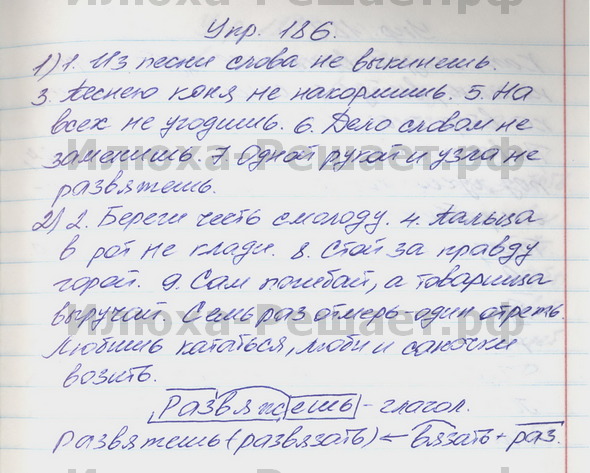 Илюха-Решает.рф
Упр. 186.
1) 1. Из песни слова не выкинешь.
3. Песнею коня не накормишь. 5. На
всех не угодишь. 6. Дело словом не
заменишь. 7. Одной рукой и узла не
развяжешь.
Илюха-Решает.рф
2) 2. Береги честь смолоду. 4. Пальца
в рот не клади. 8. Стой за правду
горой. 9. Сам погибай, а товарища
выручай. Семь раз отмерь-один отрежь.
Илюха-Решает.рф
Любишь кататься, люби и саночки
возить.
Развяжешь - глагол.
Развяжешь (развязать) ← вязать + раз.